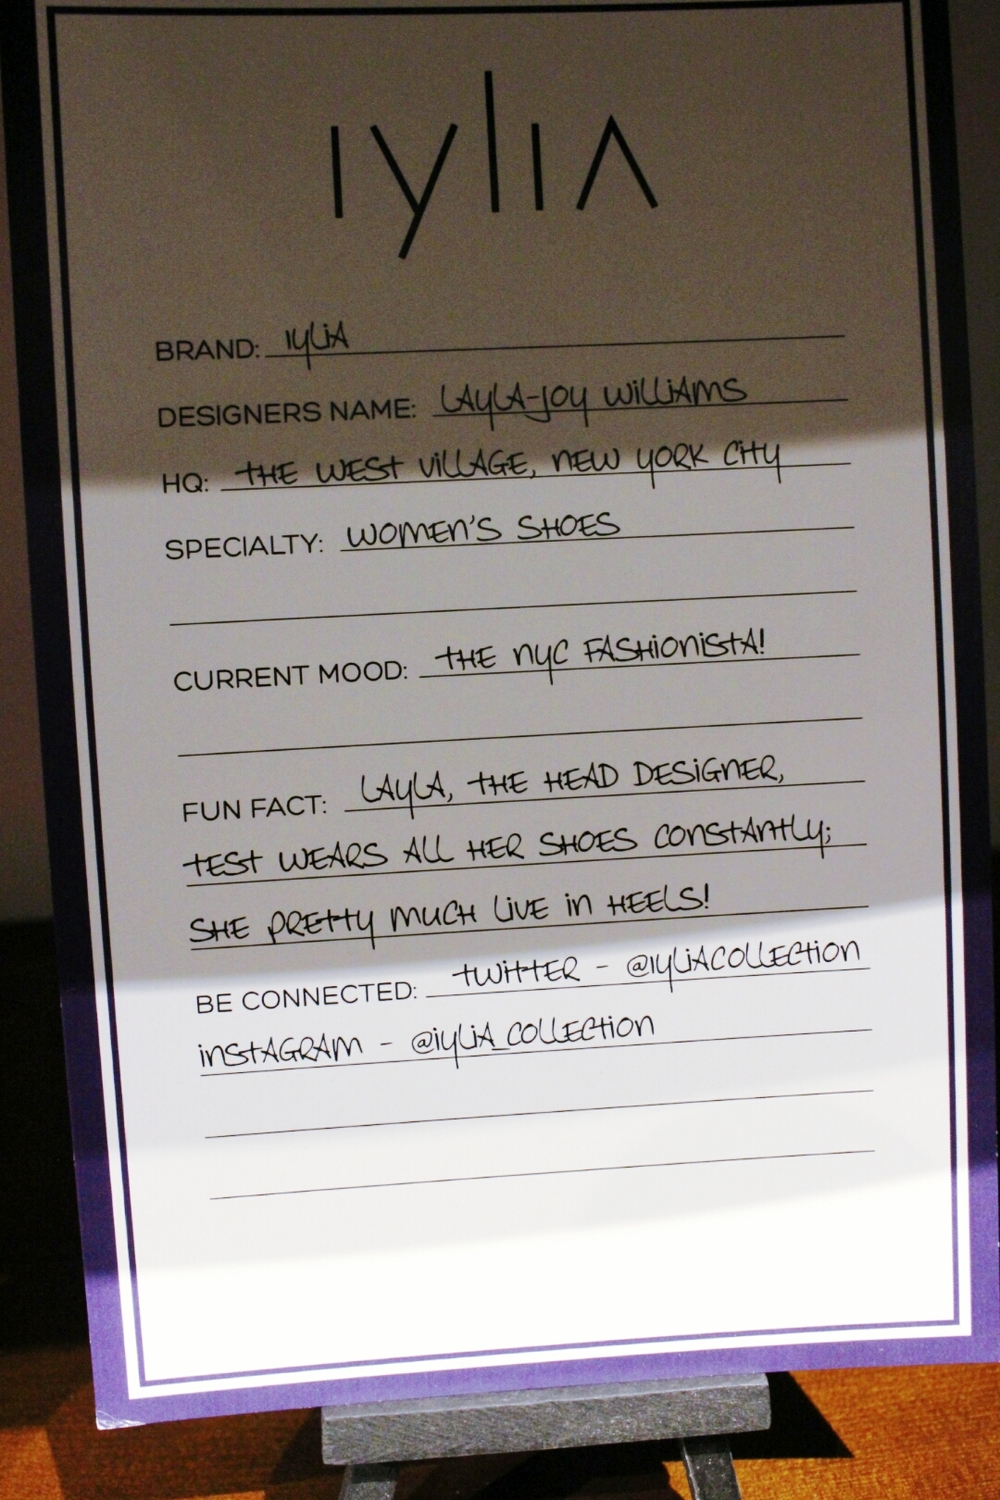 ıylıA
BRAND: iyLiA
DESIGNERS NAME: LAyLA-Joy WilliAMS
HQ: tHE WESt VillAGE, NEW yORK City
SPECIALTY: WOMEN'S SHOES
CURRENT MOOD: tHE NyC FASHioniStA!
FUN FACT: LAyLA, tHE HEAD DESiGNER,
tESt WEARS All HER SHOES COnStAntly;
SHE PREtty MUCH LiVE in HEELS!
BE CONNECTED: tWittER - @iyLiACOllECtion
inStAGRAM - @iyLiA_COllECtion